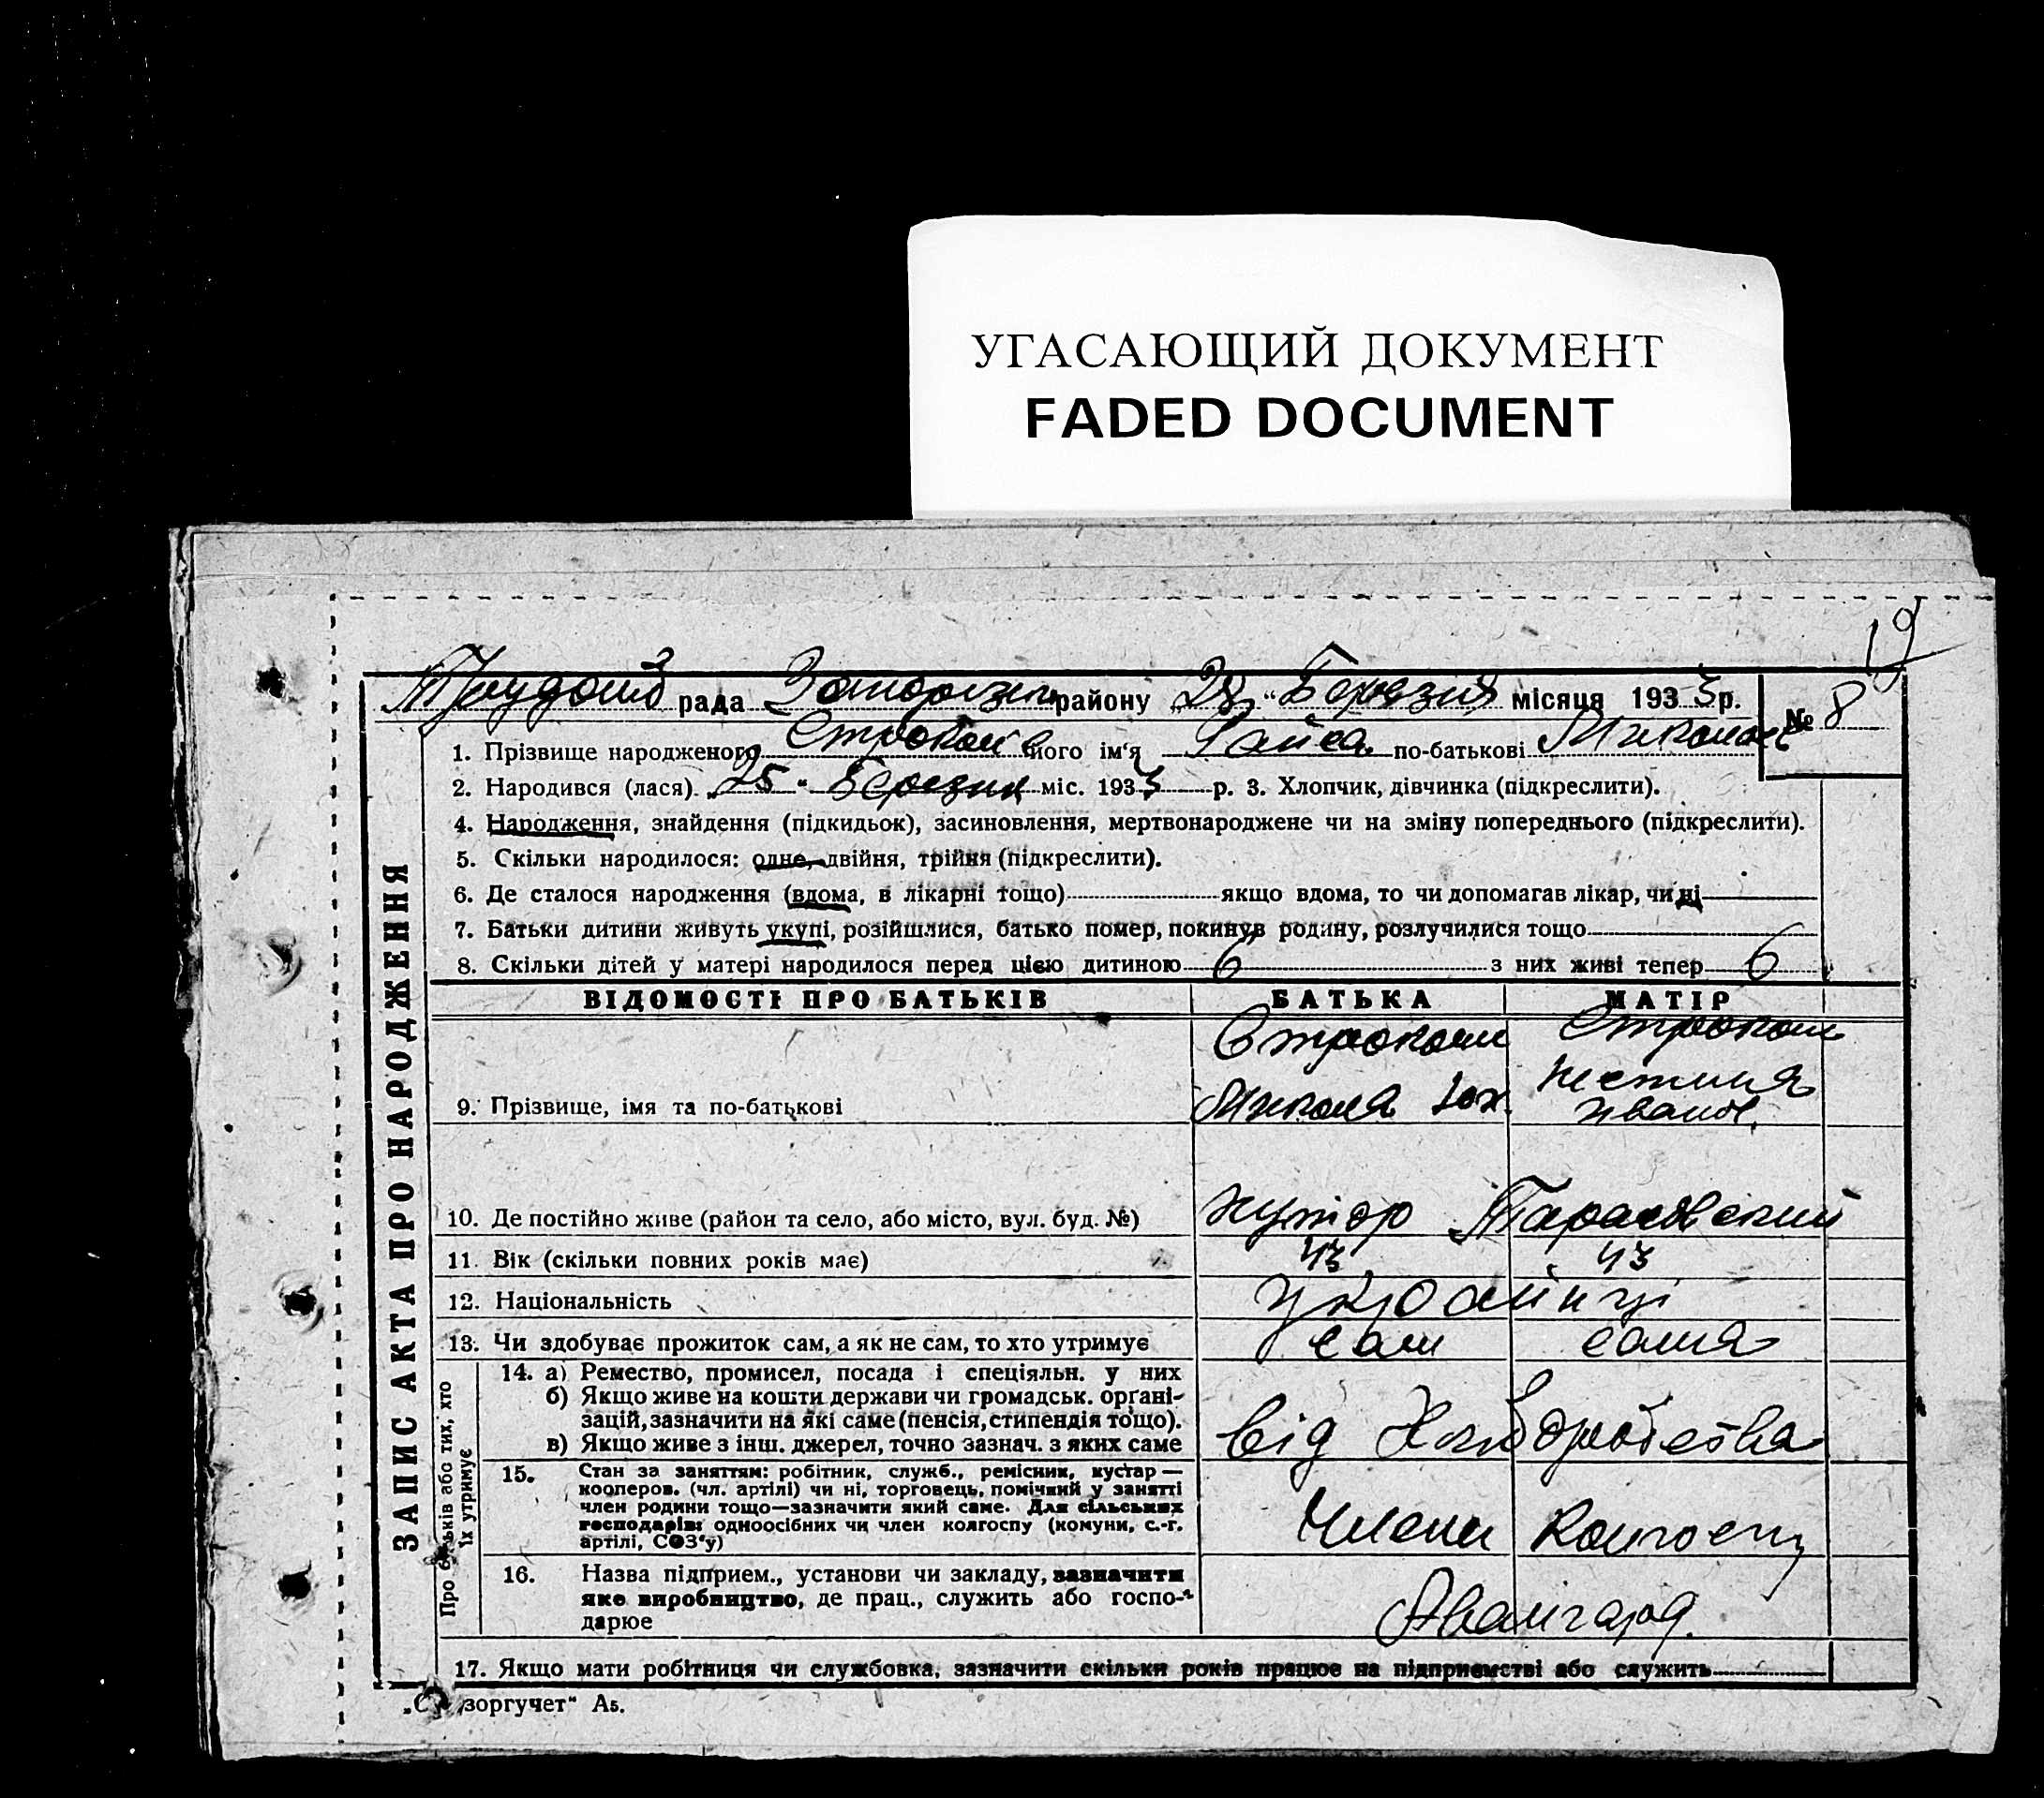 УГАСАЮЩИЙ ДОКУМЕНТ
FADED DOCUMENT
19
рада районy „28“ Березня місяця 1933 р. № 8
1. Прізвище народженого його ім'я Раїса по-батькові
2. Народився (лася) „25“ Березня міс. 1933 р. 3. Хлопчик, дівчинка (підкреслити).
4. Народження, знайдення (підкидьок), засиновлення, мертвонароджене чи на зміну попереднього (підкреслити).
5. Скільки народилося: одне, двійня, трійня (підкреслити).
6. Де сталося народження (вдома, в лікарні тощо) якщо вдома, то чи допомагав лікар, чи ні
7. Батьки дитини живуть укупі, розійшлися, батько помер, покинув родину, розлучилися тощо
8. Скільки дітей у матері народилося перед цією дитиною 6 з них живі тепер 6
ЗАПИС АКТА ПРО НАРОДЖЕННЯ
ВІДОМОСТІ ПРО БАТЬКІВ БАТЬКА МАТІР
9. Прізвище, імя та по-батькові Микола Іванов.
10. Де постійно живе (район та село, або місто, вул. буд. №) хутор Тарасовский
11. Вік (скільки повних років має) 43 43
12. Національність українці
13. Чи здобуває прожиток сам, а як не сам, то хто утримує сам сама
Про батьків або тих, хто
їх утримує
14. а) Ремество, промисел, посада і спеціяльн. у них
б) Якщо живе на кошти держави чи громадськ. органі-
зацій, зазначити на які саме (пенсія, стипендія тощо).
в) Якщо живе з інш. джерел, точно зазнач. з яких саме
від Хліборобства
15. Стан за заняттям: робітник, служб., ремісник, кустар —
кооперов. (чл. артілі) чи ні, торговець, помічний у занятті
член родини тощо—зазначити який саме. Для сільських
господарів: одноосібних чи член колгоспу (комуни, с.-г.
артілі, СОЗ'у)
Члени колгоспу
16. Назва підприєм., установи чи закладу, зазначити
яке виробництво, де прац., служить або госпо-
дарює
Авангард.
17. Якщо мати робітниця чи службовка, зазначити скільки років працює на підприємстві або служить
зоргучет" А5.